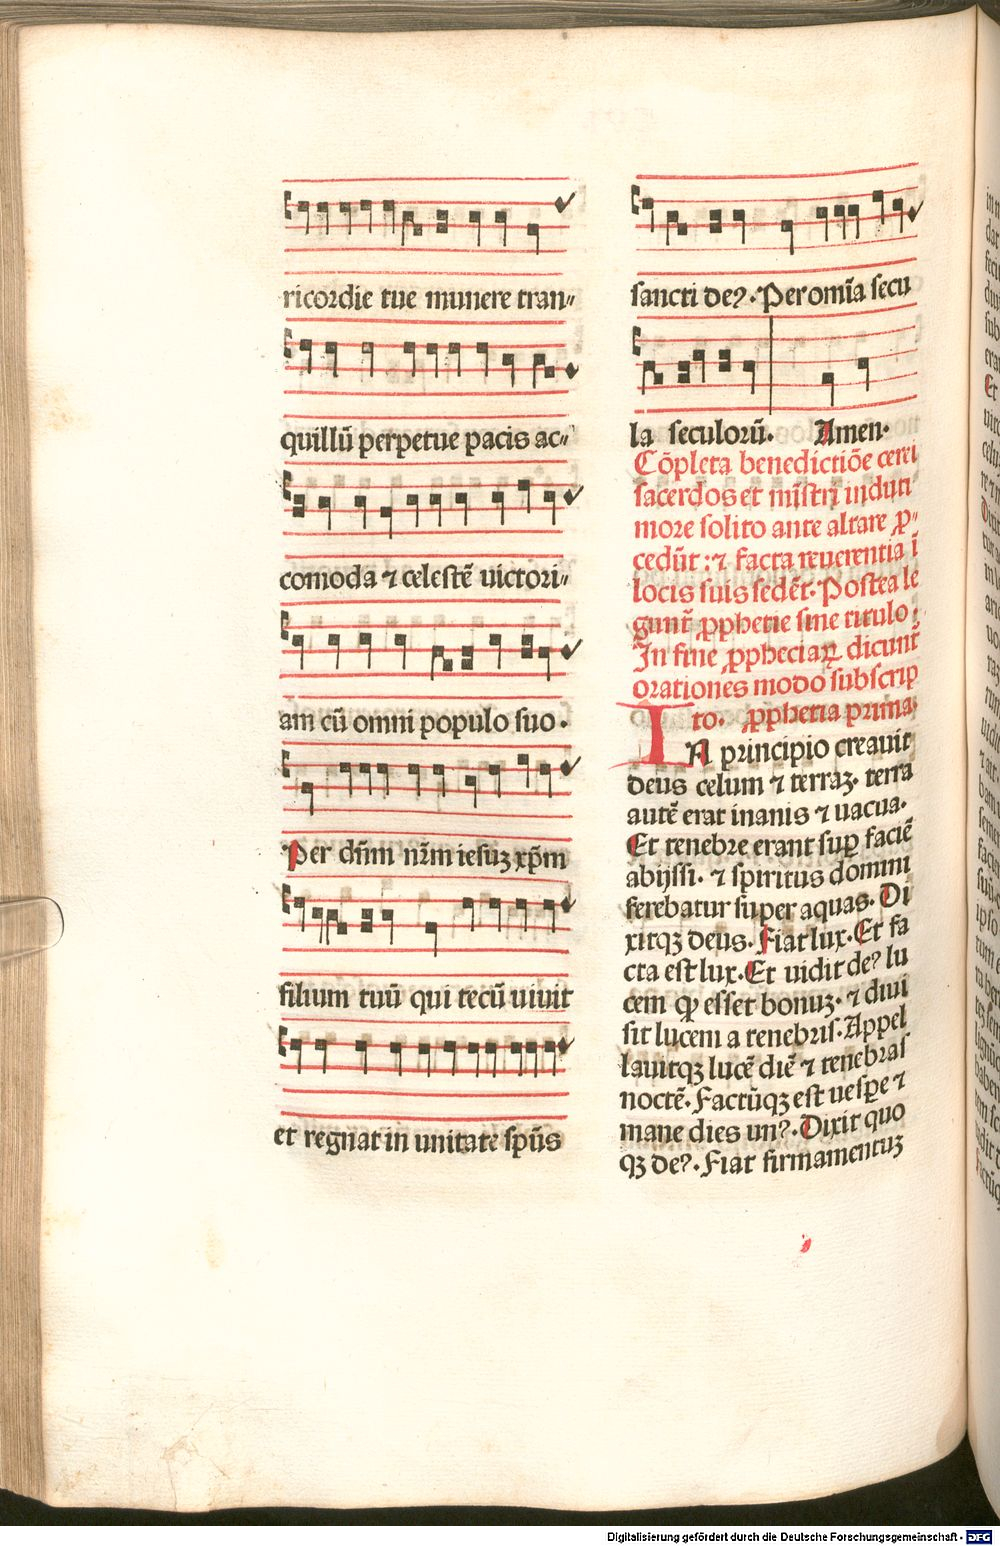 ricordie tue munere tran⸗
quillū perpetue pacis ac⸗
comoda ⁊ celestē uictori⸗
am cū omni populo suo.
Per dn̄m nr̄m iesuꝫ xp̄m
filium tuū qui tecū uiuit
et regnat in unitate sp̄us
sancti deꝰ. Per om̄ia secu
la seculorū. Amen.
Cōpleta benedictiōe cerei
sacerdos et mīstri induti
more solito ante altare ꝓ⸗
cedūt : ⁊ facta reuerentia ī
locis suis sedēt. Postea le
gunt̄ ꝓphetie sine titulo.
In fine ꝓpheciaꝝ dicunt̄
orationes modo subscrip
to. ꝓphetia prima.
IN principio creauit
deus celum ⁊ terraꝫ. terra
autē erat inanis ⁊ uacua.
Et tenebre erant suꝑ faciē
abijssi. ⁊ spiritus domini
ferebatur super aquas. Di
xitqꝫ deus. Fiat lux. Et fa
cta est lux. Et uidit deꝰ lu
cem ꝙ esset bonuꝫ. ⁊ diui
sit lucem a tenebris. Appel
lauitqꝫ lucē diē ⁊ tenebras
noctē. Factūqꝫ est uesꝑe ⁊
mane dies unꝰ. Dixit quo
qꝫ deꝰ. Fiat firmamentuꝫ
Digitalisierung gefördert durch die Deutsche Forschungsgemeinschaft - DFG